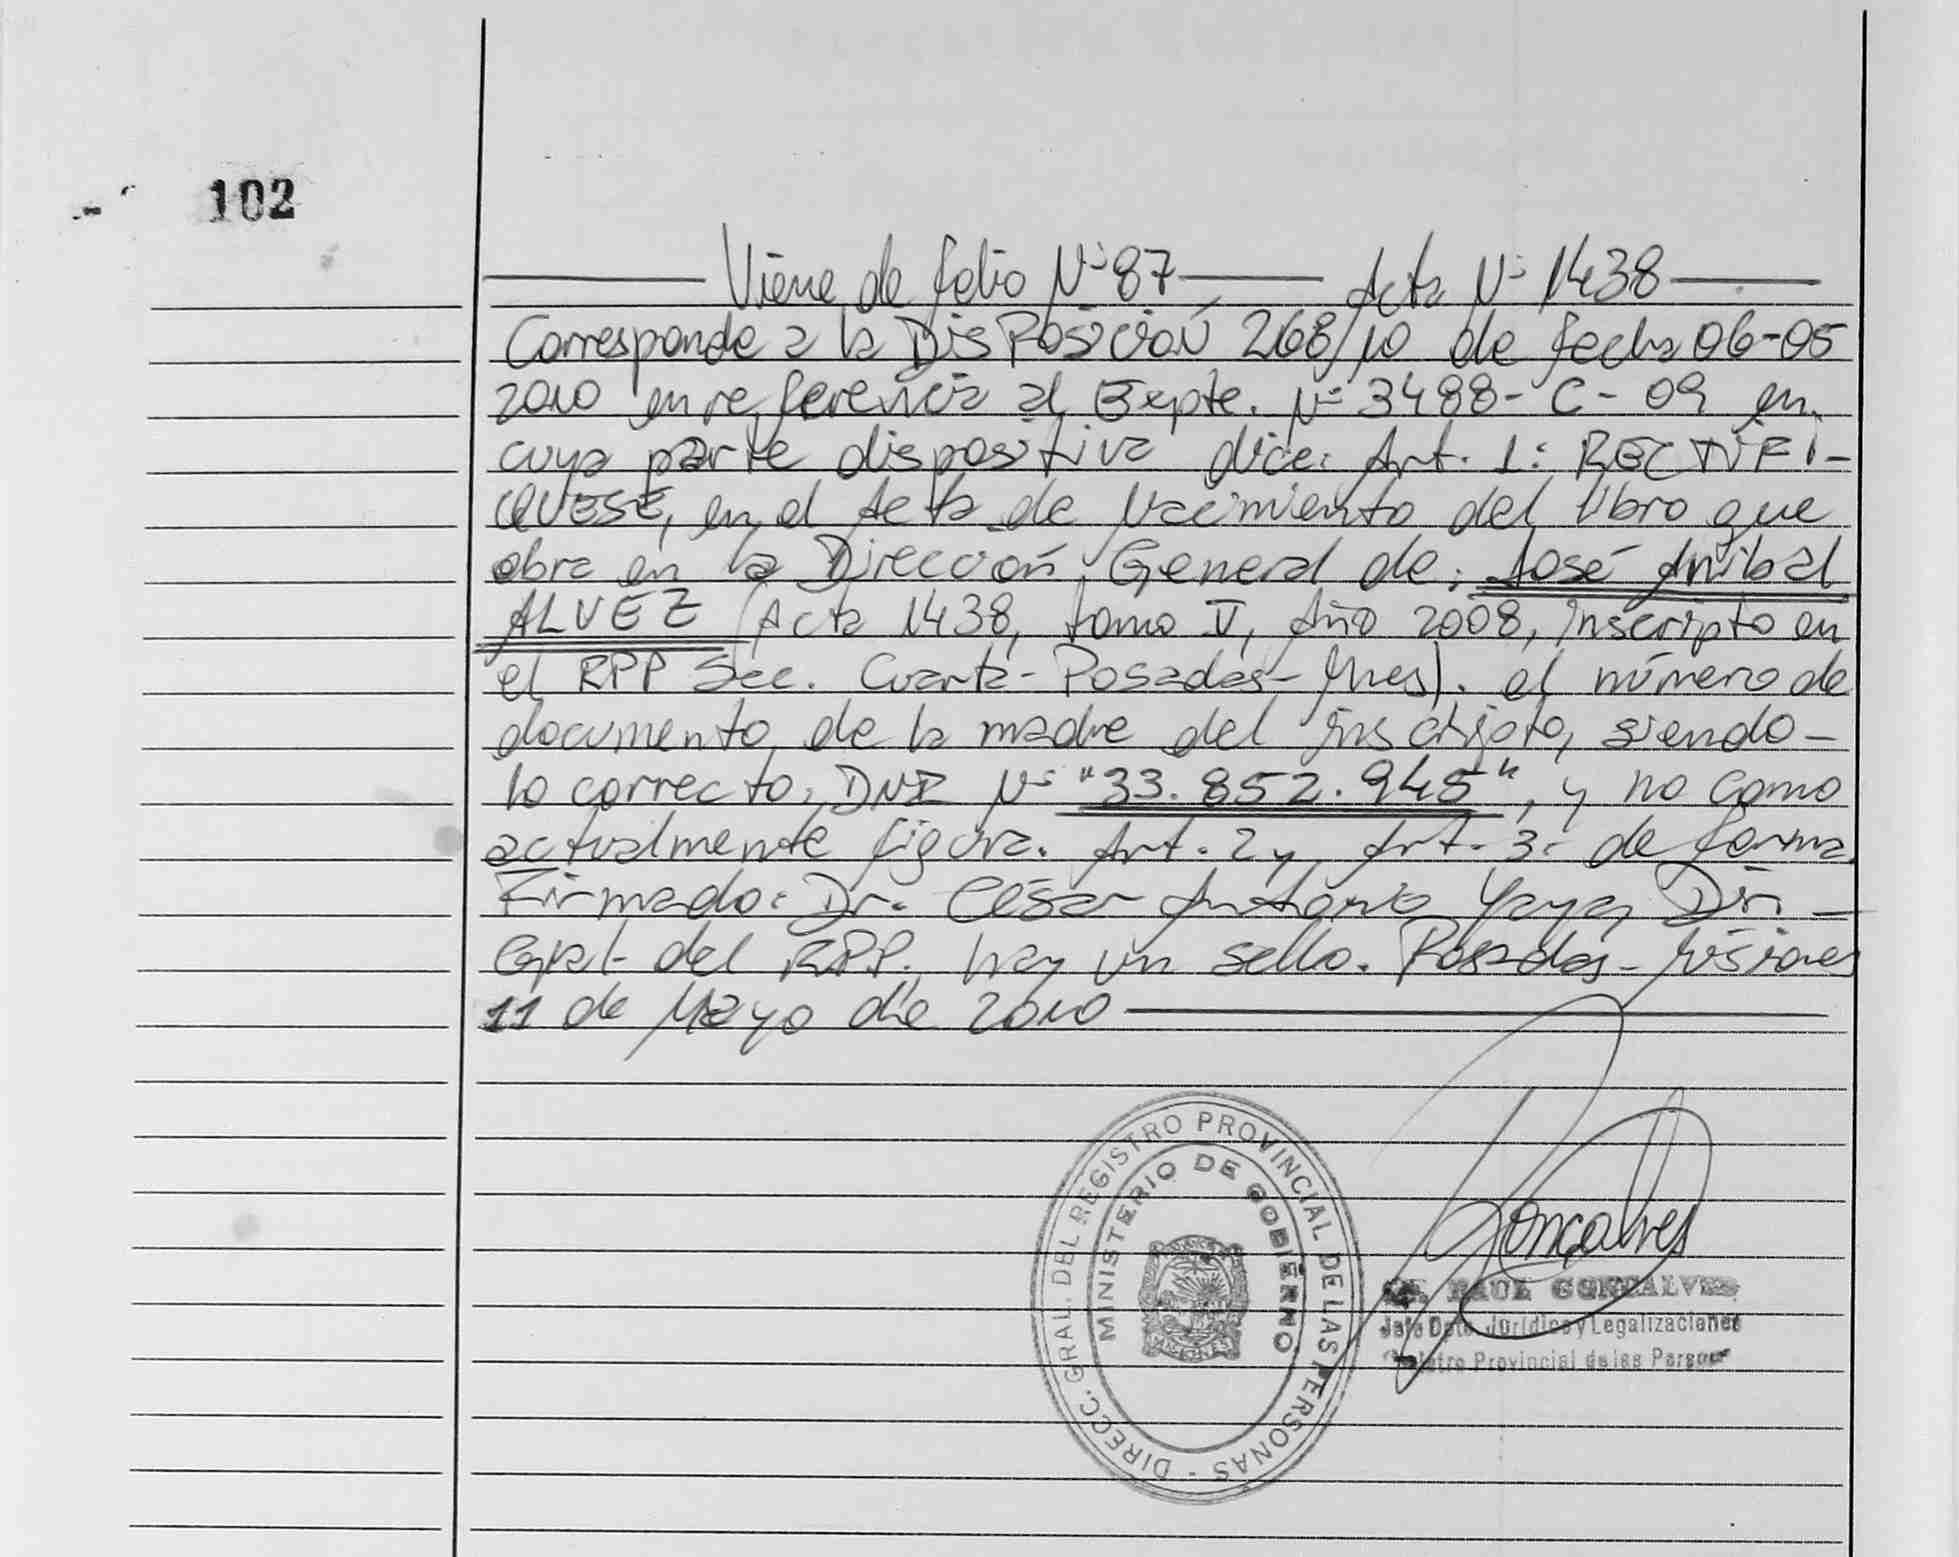 102
Viene de folio Nº 87 Acta Nº 1438
Corresponde a la Disposición 268/10 de fecha 06-05
2010 en referencia al Expte. Nº 3488-C-09 en
cuya parte dispositiva dice: Art. 1: RECTIFI-
QUESE, en el Acta de Nacimiento del libro que
obra en la Dirección General de; José Anibal
ALVEZ (Acta 1438, tomo V, Año 2008, inscripto en
el RPP Sec. Cuarta-Posadas-Mnes). el número de
documento de la madre del inscripto, siendo-
lo correcto, DNI Nº "33.852.945", y no como
actualmente figura. Art. 2 y Art. 3: de forma.
Firmado: Dr. César Antonio Yaya, Dir
Gral- del RPP. hay un sello. Posadas-Misiones
11 de Mayo de 2010
DIRECC. GRAL. DEL REGISTRO PROVINCIAL DE LAS PERSONAS -
MINISTERIO DE GOBIERNO
MISIONES
Gonçalves
RAUL GONCALVES
Jefe Dpto. Jurídico y Legalizaciones
Registro Provincial de las Personas